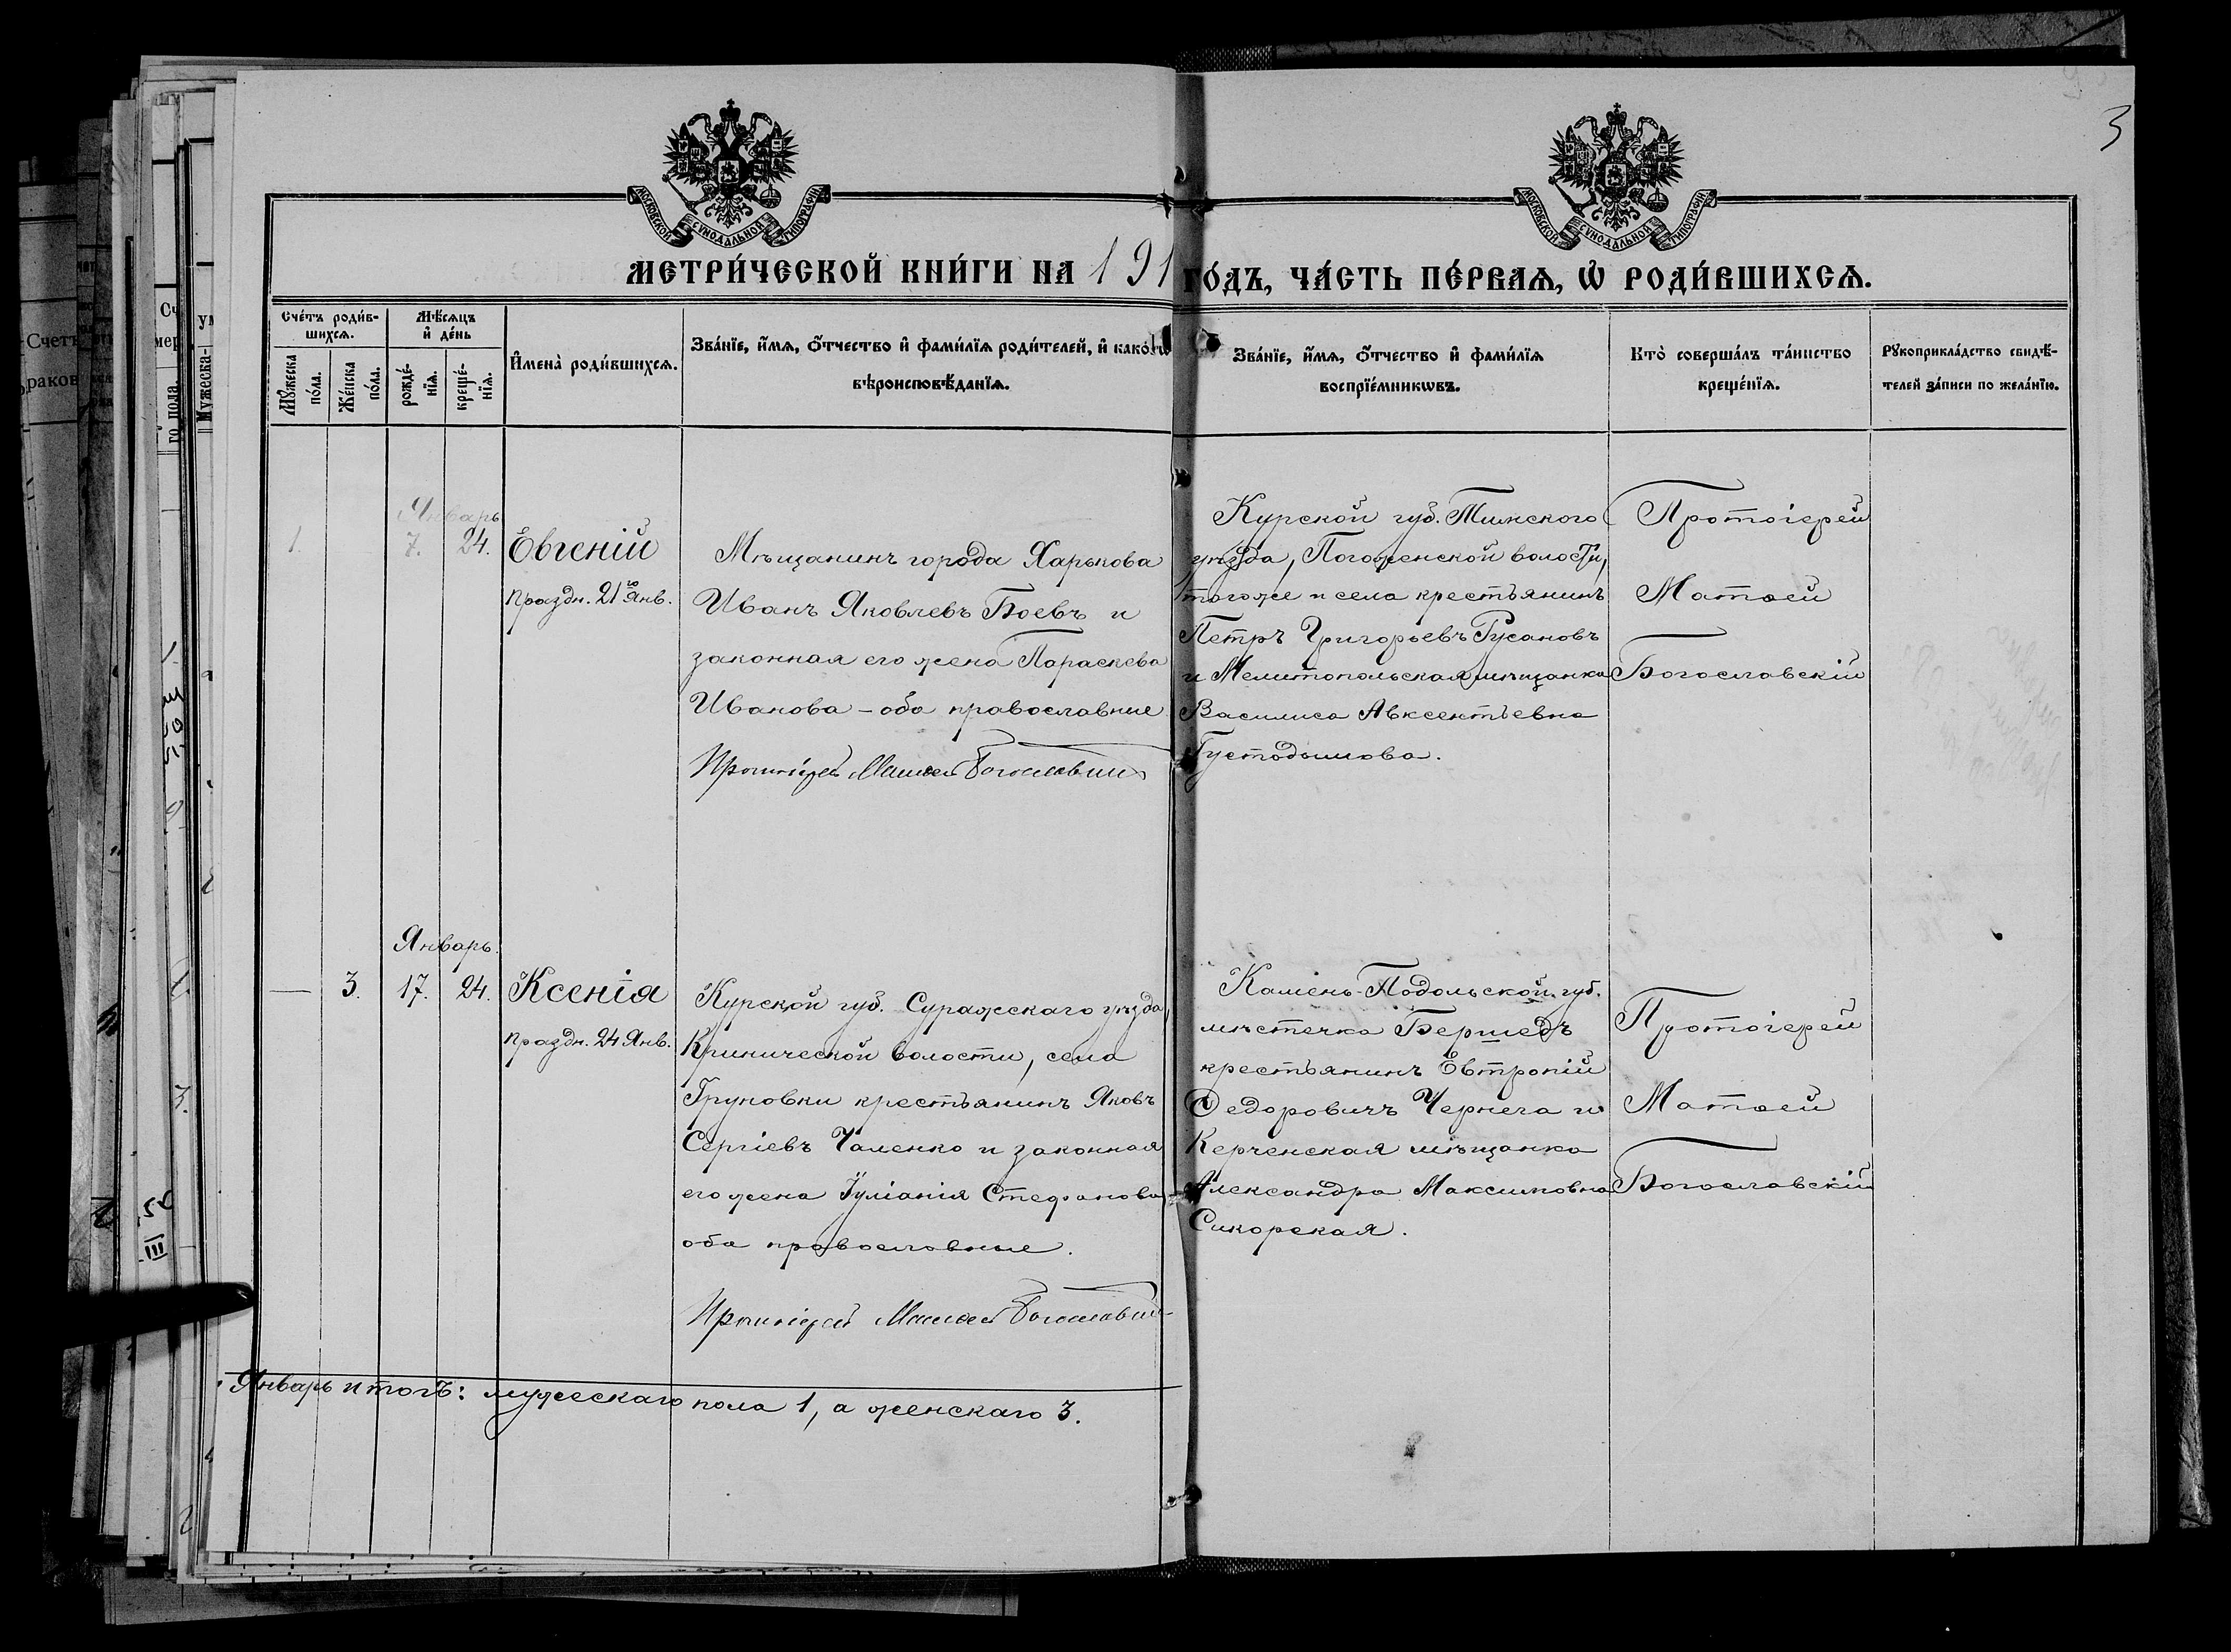 3
МОСКОВСКОЙ СУНОДАЛЬНОЙ ТИПОГРАФІИ
МОСКОВСКОЙ СУНОДАЛЬНОЙ ТИПОГРАФІИ
МЕТРИ́ЧЕСКОЙ КНИ́ГИ НА 191 ГО́ДЪ, ЧА́СТЬ ПЕ́РВАЯ, Ѡ РОДИ́ВШИХСЯ.
Сче́тъ роди́в-
шихся.
Му́жеска
по́ла.
Же́нска
по́ла.
Мѣ́сяцъ
и҆ де́нь
рожде́-
нїя.
креще́-
нїя.
И҆мена̀ роди́вшихся.
Зва́нїе, и҆́мя, ѻ҆́тчество и҆ фами́лїя роди́телей, и҆ како́гѡ
вѣроисповѣ́данїя.
Зва́нїе, и҆́мя, ѻ҆́тчество и҆ фами́лїя
воспрїе́мникѡвъ.
Кто̀ соверша́лъ та́инство
креще́нїя.
Рꙋкоприкла́дство свидѣ́-
телей за́писи по жела́нїю.
Январь
1. 7. 24. Евгеній
праздн. 21го Янв.
Мѣщанинъ города Харькова
Иванъ Яковлевъ Боевъ и
законная его жена Параскева
Иванова – оба православные
Протоіерей Матѳей Богословскій
Курской губ. Тимского
уѣзда, Погоженской волости,
того же и села крестьянинъ
Петръ Григорьевъ Русановъ
и Мелитопольская мѣщанка
Василиса Авксентьевна
Густодымова.
Протоіерей
Матѳей
Богословскій
Январь.
— 3. 17. 24. Ксенія
праздн. 24 Янв.
Курской губ. Суражскаго уѣзда,
Криничeской волости, села
Груновки крестьянинъ Яковъ
Сергіевъ Чаленко и законная
его жена Іуліанія Стефанова –
оба православные.
Протоіерей Матѳей Богословскій
Каменъ-Подольской губ.
мѣстечка Бершедъ
крестьянинъ Евтропій
Федоровичъ Чернега и
Керченская мѣщанка
Александра Максимовна
Сикорская.
Протоіерей
Матѳей
Богословскій
Январь итогъ: мужескаго пола 1, а женскаго 3.